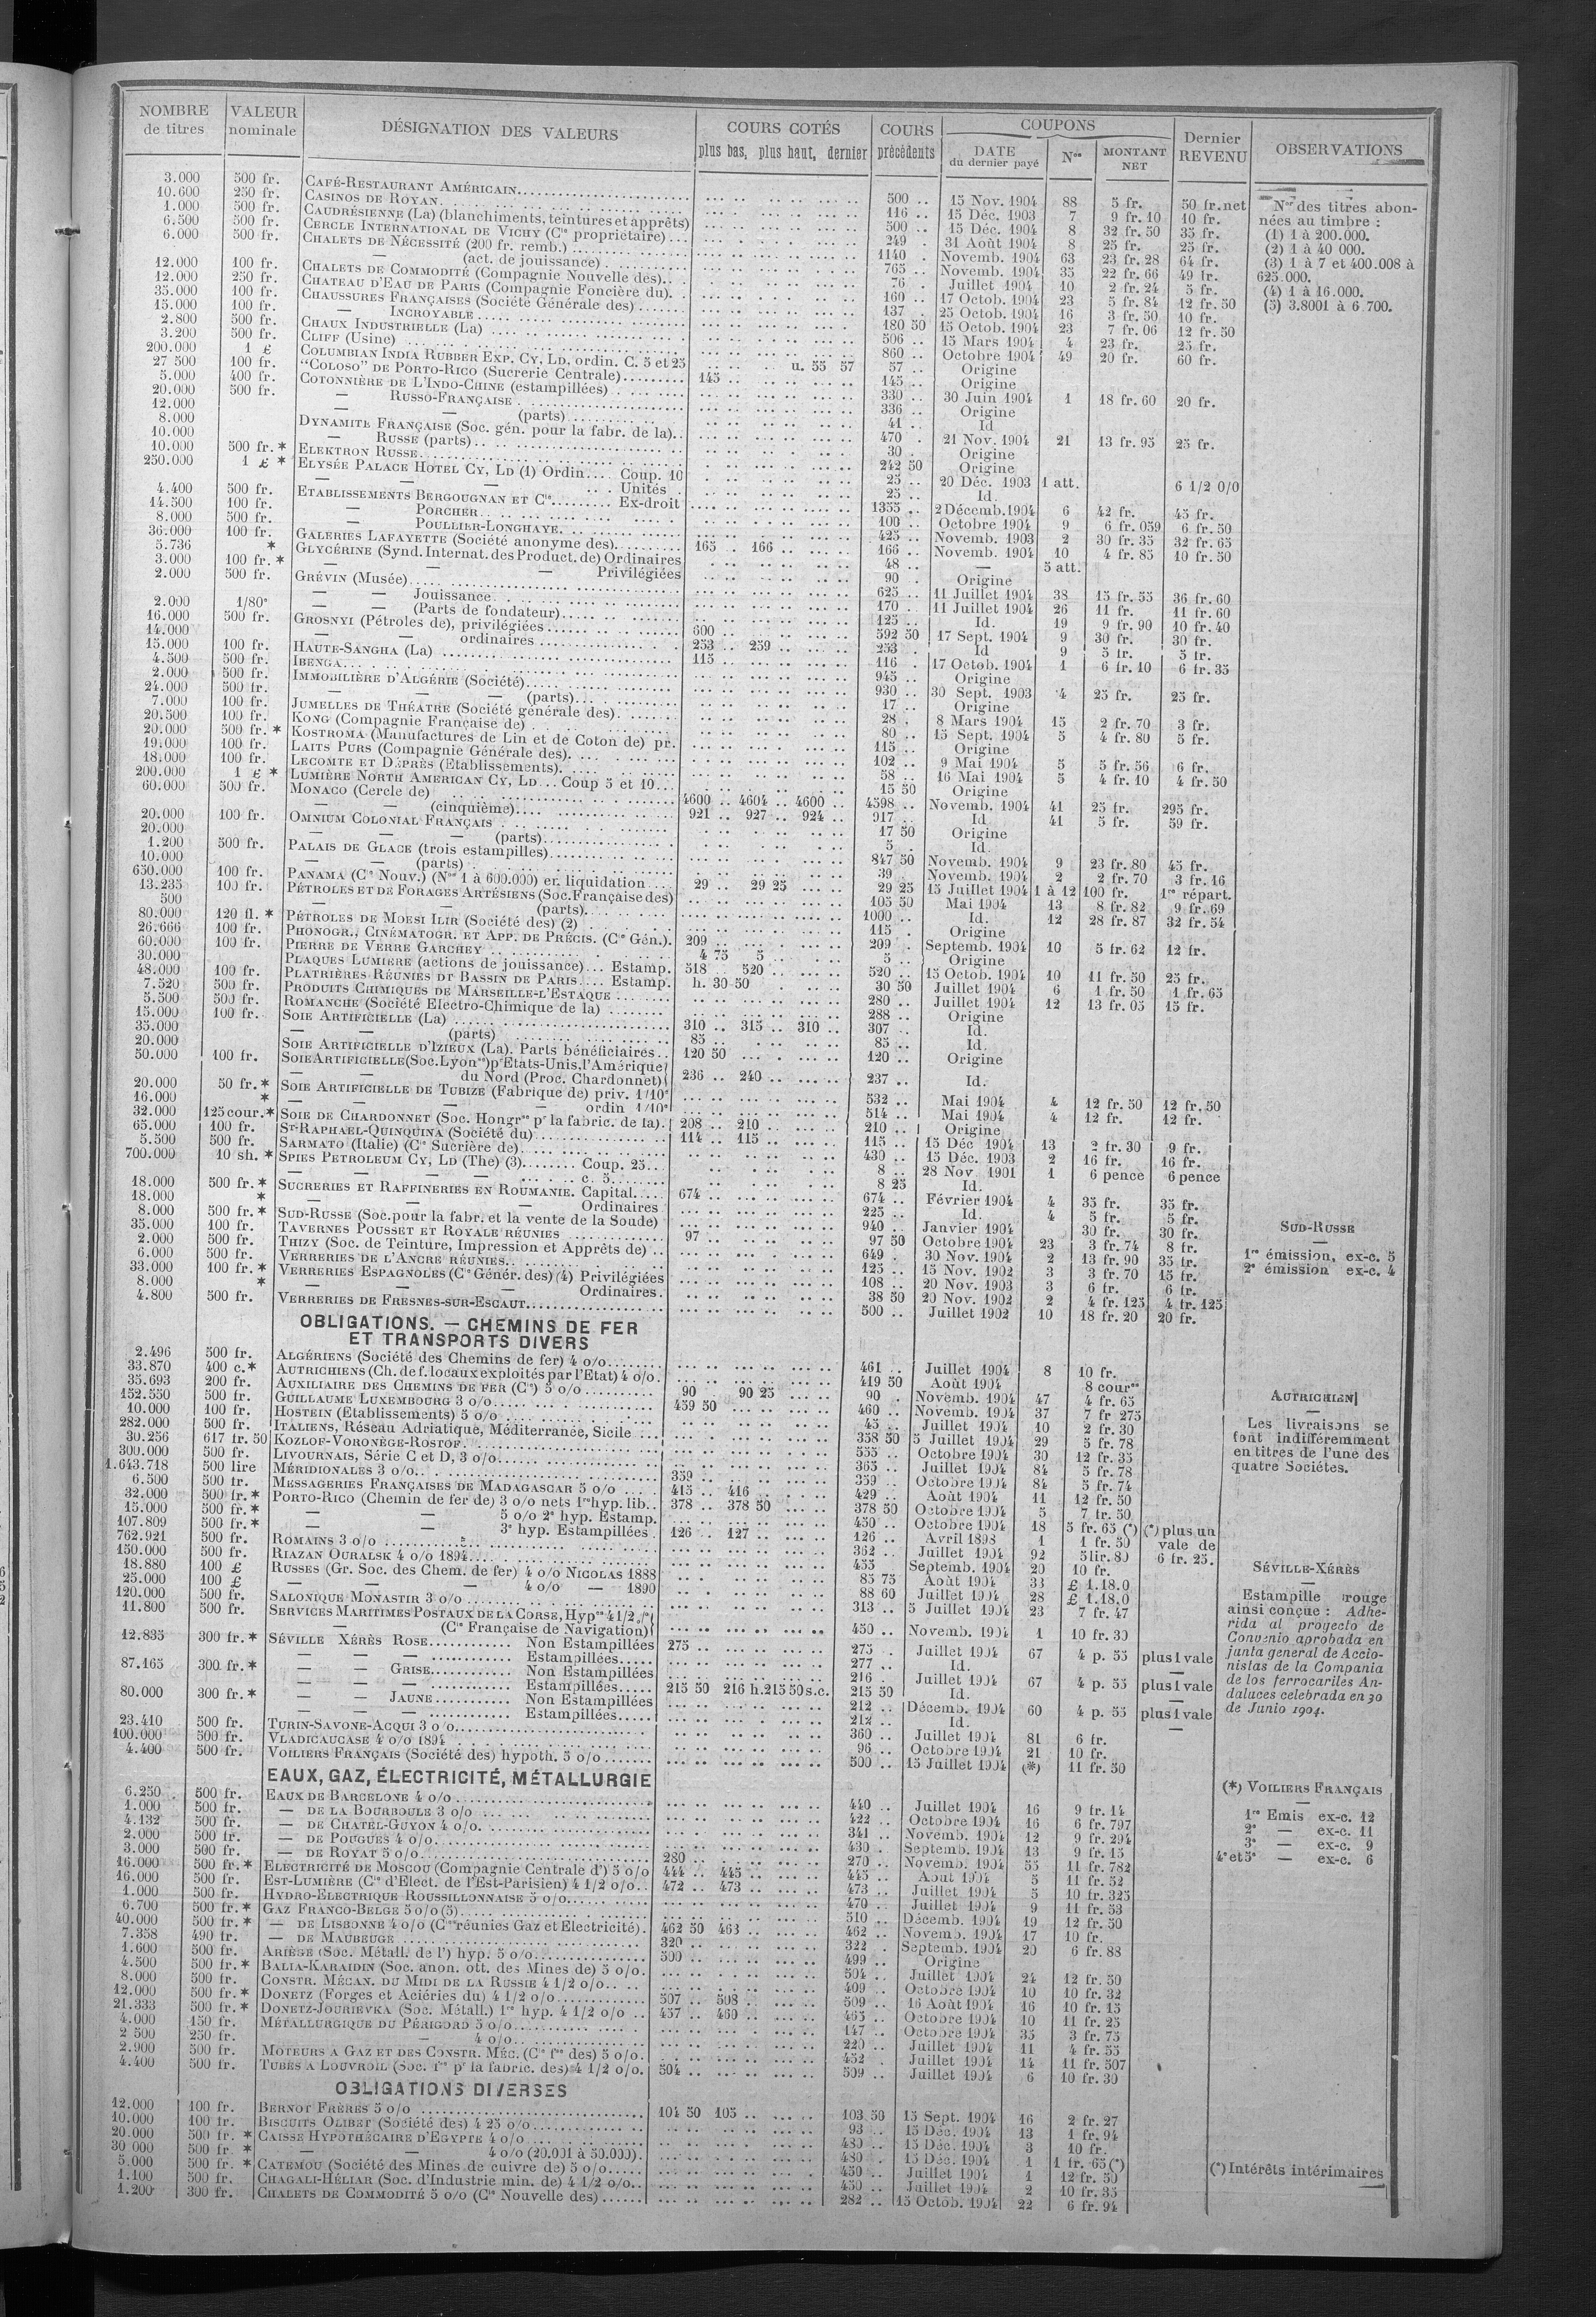 NOMBRE de titres | VALEUR nominale | DÉSIGNATION DES VALEURS | COURS COTÉS plus bas, plus haut, dernier | COURS précédents | COUPONS DATE du dernier payé | Nos | MONTANT NET | Dernier REVENU | OBSERVATIONS
3.000 500 fr. CAFÉ-RESTAURANT AMÉRICAIN 500 .. 15 Nov. 1904 88 5 fr. 50 fr. net
10.600 250 fr. CASINOS DE ROYAN 116 .. 15 Déc. 1903 7 9 fr. 10 10 fr.
1.000 500 fr. CAUDRÉSIENNE (La) (blanchiments, teintures et apprêts) 500 .. 15 Déc. 1904 8 32 fr. 50 35 fr.
6.500 500 fr. CERCLE INTERNATIONAL DE VICHY (Cie propriétaire) 249 . 31 Août 1904 8 25 fr. 25 fr.
6.000 500 fr. CHALETS DE NÉCESSITÉ (200 fr. remb.) 1140 . Novemb. 1904 63 23 fr. 28 64 fr.
— (act. de jouissance) 765 .. Novemb. 1904 35 22 fr. 66 49 fr.
12.000 100 fr. CHALETS DE COMMODITÉ (Compagnie Nouvelle des) 76 . Juillet 1904 10 2 fr. 24 5 fr.
12.000 250 fr. CHATEAU D'EAU DE PARIS (Compagnie Foncière du) 160 .. 17 Octob. 1904 23 5 fr. 84 12 fr. 50
35.000 100 fr. CHAUSSURES FRANÇAISES (Société Générale des) 137 . 25 Octob. 1904 16 3 fr. 50 10 fr.
15.000 100 fr. — INCROYABLE 180 50 15 Octob. 1904 23 7 fr. 06 12 fr. 50
2.800 500 fr. CHAUX INDUSTRIELLE (La) 506 .. 15 Mars 1904 4 23 fr. 25 fr.
3.200 500 fr. CLIFF (Usine) 860 .. Octobre 1904 49 20 fr. 60 fr.
200.000 1 £ COLUMBIAN INDIA RUBBER EXP. CY, LD, ordin. C. 5 et 25 u. 55 57 57 .. Origine
27 500 100 fr. "COLOSO" DE PORTO-RICO (Sucrerie Centrale) 145 .. 145 .. Origine
5.000 400 fr. COTONNIÈRE DE L'INDO-CHINE (estampillées) 330 .. 30 Juin 1904 1 18 fr. 60 20 fr.
20.000 500 fr. — RUSSO-FRANÇAISE 336 .. Origine
12.000 — — (parts) 41 .. Id
8.000 DYNAMITE FRANÇAISE (Soc. gén. pour la fabr. de la) 470 . 21 Nov. 1904 21 13 fr. 95 25 fr.
10.000 — RUSSE (parts) 30 . Origine
10.000 500 fr. * ELEKTRON RUSSE 242 50 Origine
250.000 1 £ * ELYSÉE PALACE HOTEL CY, LD (1) Ordin. Coup. 10 25 .. 20 Déc. 1903 1 att. 6 1/2 0/0
— — — Unités 25 .. Id.
4.400 500 fr. ETABLISSEMENTS BERGOUGNAN ET Cie Ex-droit 1355 .. 2 Décemb. 1904 6 42 fr. 45 fr.
14.500 100 fr. — PORCHER 100 . Octobre 1904 9 6 fr. 059 6 fr. 50
8.000 500 fr. — POULLIER-LONGHAYE 425 .. Novemb. 1903 2 30 fr. 35 32 fr. 65
36.000 100 fr. GALERIES LAFAYETTE (Société anonyme des) 165 .. 166 .. 166 .. Novemb. 1904 10 4 fr. 85 10 fr. 50
5.736 * GLYCÉRINE (Synd. Internat. des Product. de) Ordinaires 48 .. — 5 att.
3.000 100 fr. * — — — Privilégiées 90 . Origine
2.000 500 fr. GRÉVIN (Musée) 625 .. 11 Juillet 1904 38 15 fr. 55 36 fr. 60
— — Jouissance 170 . 11 Juillet 1904 26 11 fr. 11 fr. 60
2.000 1/80e — — (Parts de fondateur) 125 .. Id. 19 9 fr. 90 10 fr. 40
16.000 500 fr. GROSNYI (Pétroles de), privilégiées 600 .. 592 50 17 Sept. 1904 9 30 fr. 30 fr.
14.000 — — ordinaires 253 .. 259 .. 253 . Id 9 5 fr. 5 fr.
15.000 100 fr. HAUTE-SANGHA (La) 115 .. 116 . 17 Octob. 1904 1 6 fr. 10 6 fr. 35
4.500 500 fr. IBENGA 945 .. Origine
2.000 500 fr. IMMOBILIÈRE D'ALGÉRIE (Société) 930 .. 30 Sept. 1903 4 25 fr. 25 fr.
24.000 500 fr. — — — (parts) 17 .. Origine
7.000 100 fr. JUMELLES DE THÉATRE (Société générale des) 28 . 8 Mars 1904 15 2 fr. 70 3 fr.
20.500 100 fr. KONG (Compagnie Française de) 80 .. 15 Sept. 1904 5 4 fr. 80 5 fr.
20.000 500 fr. * KOSTROMA (Manufactures de Lin et de Coton de) pr. 115 .. Origine
19.000 100 fr. LAITS PURS (Compagnie Générale des) 102 .. 9 Mai 1904 5 5 fr. 56 6 fr.
18.000 100 fr. LECOMTE ET DÉPRÈS (Etablissements) 58 .. 16 Mai 1904 5 4 fr. 10 4 fr. 50
200.000 1 £ * LUMIÈRE NORTH AMERICAN CY, LD Coup 5 et 10 15 50 Origine
60.000 500 fr. MONACO (Cercle de) 4600 .. 4604 .. 4600 .. 4598 .. Novemb. 1904 41 25 fr. 295 fr.
— — (cinquième) 921 .. 927 .. 924 .. 917 .. Id. 41 5 fr. 59 fr.
20.000 100 fr. OMNIUM COLONIAL FRANÇAIS 17 50 Origine
20.000 — — (parts) 5 . Id.
1.200 500 fr. PALAIS DE GLACE (trois estampilles) 847 50 Novemb. 1904 9 23 fr. 80 45 fr.
10.000 — — (parts) 39 . Novemb. 1904 2 2 fr. 70 3 fr. 16
650.000 100 fr. PANAMA (Cie Nouv.) (Nos 1 à 600.000) en liquidation 29 .. 29 25 29 25 15 Juillet 1904 1 à 12 100 fr. 1re répart.
13.235 100 fr. PÉTROLES ET DE FORAGES ARTÉSIENS (Soc. Française des) 105 50 Mai 1904 13 8 fr. 82 9 fr. 69
500 — (parts) 1000 .. Id. 12 28 fr. 87 32 fr. 54
80.000 120 fl. * PÉTROLES DE MOESI ILIR (Société des) (2) 115 . Origine
26.666 100 fr. PHONOGR., CINÉMATOGR. ET APP. DE PRÉCIS. (Cie Gén.) 209 .. 209 . Septemb. 1904 10 5 fr. 62 12 fr.
60.000 100 fr. PIERRE DE VERRE GARCHEY 4 75 5 .. 5 .. Origine
30.000 PLAQUES LUMIÈRE (actions de jouissance) Estamp. 518 520 .. 520 .. 15 Octob. 1904 10 11 fr. 50 25 fr.
48.000 100 fr. PLATRIÈRES RÉUNIES DU BASSIN DE PARIS Estamp. h. 30 50 30 50 Juillet 1904 6 1 fr. 50 1 fr. 65
7.520 500 fr. PRODUITS CHIMIQUES DE MARSEILLE-L'ESTAQUE 280 .. Juillet 1904 12 13 fr. 05 15 fr.
5.500 500 fr. ROMANCHE (Société Electro-Chimique de la) 288 .. Origine
15.000 100 fr. SOIE ARTIFICIELLE (La) 310 .. 315 .. 310 .. 307 .. Id.
35.000 — — (parts) 85 .. 85 .. Id.
20.000 SOIE ARTIFICIELLE D'IZIEUX (La). Parts bénéficiaires 120 50 120 .. Origine
50.000 100 fr. SOIE ARTIFICIELLE (Soc. Lyonse) pr Etats-Unis. l'Amérique
— — du Nord (Proc. Chardonnet) 236 .. 240 .. 237 .. Id.
20.000 50 fr. * SOIE ARTIFICIELLE DE TUBIZE (Fabrique de) priv. 1/10e 532 .. Mai 1904 4 12 fr. 50 12 fr. 50
16.000 * — — — ordin 1/10e 514 .. Mai 1904 4 12 fr. 12 fr.
32.000 125 cour. * SOIE DE CHARDONNET (Soc. Hongrse pr la fabric. de la) 208 .. 210 .. 210 .. Origine
65.000 100 fr. ST-RAPHAEL-QUINQUINA (Société du) 114 .. 115 .. 115 .. 15 Déc 1904 13 2 fr. 30 9 fr.
5.500 500 fr. SARMATO (Italie) (Cie Sucrière de) 430 .. 15 Déc. 1903 2 16 fr. 16 fr.
700.000 10 sh. * SPIES PETROLEUM CY, LD (The) (3) Coup. 25 8 .. 28 Nov 1901 1 6 pence 6 pence
— — — c. 5 8 25 Id.
18.000 500 fr. * SUCRERIES ET RAFFINERIES EN ROUMANIE. Capital 674 .. 674 .. Février 1904 4 35 fr. 35 fr.
18.000 * — — Ordinaires 225 .. Id. 4 5 fr. 5 fr.
8.000 500 fr. * SUD-RUSSE (Soc. pour la fabr. et la vente de la Soude) 940 .. Janvier 1904 30 fr. 30 fr.
35.000 100 fr. TAVERNES POUSSET ET ROYALE RÉUNIES 97 .. 97 50 Octobre 1904 23 3 fr. 74 8 fr.
2.000 500 fr. THIZY (Soc. de Teinture, Impression et Apprêts de) 649 . 30 Nov. 1904 2 13 fr. 90 35 fr.
6.000 500 fr. VERRERIES DE L'ANCRE RÉUNIES 125 .. 15 Nov. 1902 3 3 fr. 70 15 fr.
33.000 100 fr. * VERRERIES ESPAGNOLES (Cie Génér. des) (4) Privilégiées 108 .. 20 Nov. 1903 3 6 fr. 6 fr.
8.000 * — — Ordinaires 38 50 20 Nov. 1902 2 4 fr. 125 4 fr. 125
4.800 500 fr. VERRERIES DE FRESNES-SUR-ESCAUT 500 .. Juillet 1902 10 18 fr. 20 20 fr.
OBLIGATIONS. — CHEMINS DE FER
ET TRANSPORTS DIVERS
2.496 500 fr. ALGÉRIENS (Société des Chemins de fer) 4 o/o 461 .. Juillet 1904 8 10 fr.
33.870 400 c. * AUTRICHIENS (Ch. de f. locaux exploités par l'Etat) 4 o/o 419 50 Août 1904 8 cour.
35.693 200 fr. AUXILIAIRE DES CHEMINS DE FER (Cie) 5 o/o 90 90 25 90 . Novemb. 1904 47 4 fr. 65
152.550 500 fr. GUILLAUME LUXEMBOURG 3 o/o 459 50 460 .. Novemb. 1904 37 7 fr 275
10.000 100 fr. HOSTEIN (Etablissements) 5 o/o 45 .. Juillet 1904 10 2 fr. 30
282.000 500 fr. ITALIENS, Réseau Adriatique, Méditerranée, Sicile 358 50 5 Juillet 1904 29 5 fr. 78
30.256 617 fr. 50 KOZLOF-VORONÈGE-ROSTOF 555 .. Octobre 1904 30 12 fr. 35
300.000 500 fr. LIVOURNAIS, Série C et D, 3 o/o 365 .. Juillet 1904 84 5 fr. 78
1.643.718 500 lire MÉRIDIONALES 3 o/o 359 .. 359 .. Octobre 1904 84 5 fr. 74
6.500 500 fr. MESSAGERIES FRANÇAISES DE MADAGASCAR 5 o/o 415 .. 416 .. 429 .. Août 1904 11 12 fr. 50
32.000 500 fr. * PORTO-RICO (Chemin de fer de) 3 o/o nets 1re hyp. lib. 378 .. 378 50 378 50 Octobre 1904 5 7 fr. 50
15.000 500 fr. * — — 5 o/o 2e hyp. Estamp. 450 .. Octobre 1904 18 5 fr. 65 (*) (*) plus un
107.809 500 fr. * — — 3e hyp. Estampillées 126 .. 127 .. 126 .. Avril 1898 1 1 fr. 50 vale de
762.921 500 fr. ROMAINS 3 o/o 362 .. Juillet 1904 92 5 lir. 80 6 fr. 25.
150.000 500 fr. RIAZAN OURALSK 4 o/o 1894 455 Septemb. 1904 20 10 fr.
18.880 100 £ RUSSES (Gr. Soc. des Chem. de fer) 4 o/o NICOLAS 1888 85 75 Août 1904 33 £ 1.18.0
25.000 100 £ — — — 4 o/o — 1890 88 60 Juillet 1904 28 £ 1.18.0
120.000 500 fr. SALONIQUE MONASTIR 3 o/o 313 .. 5 Juillet 1904 23 7 fr. 47
11.800 500 fr. SERVICES MARITIMES POSTAUX DE LA CORSE, Hypre 4 1/2 o/o
— (Cie Française de Navigation) 450 .. Novemb. 1904 1 10 fr. 30
12.835 300 fr. * SÉVILLE XÉRÈS ROSE Non Estampillées 275 .. 275 . Juillet 1904 67 4 p. 55 plus 1 vale
— — — Estampillées 277 .. Id. —
87.165 300 fr. * — — GRISE Non Estampillées 216 .. Juillet 1904 67 4 p. 55 plus 1 vale
— — — Estampillées 215 50 216 h. 215 50 s.c. 215 50 Id. —
80.000 300 fr. * — — JAUNE Non Estampillées 212 .. Décemb. 1904 60 4 p. 55 plus 1 vale
— — — Estampillées 212 .. Id. —
23.410 500 fr. TURIN-SAVONE-ACQUI 3 o/o 360 .. Juillet 1904 81 6 fr.
100.000 500 fr. VLADICAUCASE 4 o/o 1894 96 .. Octobre 1904 21 10 fr.
4.400 500 fr. VOILIERS FRANÇAIS (Société des) hypoth. 5 o/o 500 .. 15 Juillet 1904 (*) 11 fr. 50
EAUX, GAZ, ÉLECTRICITÉ, MÉTALLURGIE
6.250 500 fr. EAUX DE BARCELONE 4 o/o 440 .. Juillet 1904 16 9 fr. 14
1.000 500 fr. — DE LA BOURBOULE 3 o/o 422 .. Octobre 1904 16 6 fr. 797
4.132 500 fr. — DE CHATEL-GUYON 4 o/o 341 .. Novemb. 1904 12 9 fr. 294
2.000 500 fr. — DE POUGUES 4 o/o 430 . Septemb. 1904 13 9 fr. 15
3.000 500 fr. — DE ROYAT 5 o/o 280 .. 270 .. Novemb. 1904 55 11 fr. 782
16.000 500 fr. * ELECTRICITÉ DE MOSCOU (Compagnie Centrale d') 5 o/o 444 .. 445 .. 445 .. Août 1904 5 11 fr. 52
16.000 500 fr. EST-LUMIÈRE (Cie d'Elect. de l'Est-Parisien) 4 1/2 o/o 472 .. 473 .. 473 .. Juillet 1904 5 10 fr. 325
1.000 500 fr. HYDRO-ÉLECTRIQUE ROUSSILLONNAISE 5 o/o 470 .. Juillet 1904 9 11 fr. 53
6.700 500 fr. * GAZ FRANCO-BELGE 5 o/o (5) 510 .. Décemb. 1904 19 12 fr. 50
40.000 500 fr. * — DE LISBONNE 4 o/o (Cies réunies Gaz et Electricité) 462 50 463 462 .. Novemb. 1904 17 10 fr.
7.358 490 fr. — DE MAUBEUGE 320 .. 322 . Septemb. 1904 20 6 fr. 88
1.600 500 fr. ARIÈGE (Soc. Métall. de l') hyp. 5 o/o 500 .. 499 .. Origine
4.500 500 fr. * BALIA-KARAIDIN (Soc. anon. ott. des Mines de) 5 o/o 504 .. Juillet 1904 24 12 fr. 50
8.000 500 fr. CONSTR. MÉCAN. DU MIDI DE LA RUSSIE 4 1/2 o/o 409 .. Octobre 1904 10 10 fr. 32
12.000 500 fr. * DONETZ (Forges et Aciéries du) 4 1/2 o/o 507 .. 508 .. 509 .. 16 Août 1904 16 10 fr. 15
21.333 500 fr. * DONETZ-JOURIEVKA (Soc. Métall.) 1re hyp. 4 1/2 o/o 457 .. 460 .. 465 .. Octobre 1904 10 11 fr. 25
4.000 150 fr. MÉTALLURGIQUE DU PÉRIGORD 5 o/o 147 .. Octobre 1904 35 3 fr. 75
2 500 250 fr. — 4 o/o 220 .. Juillet 1904 11 4 fr. 55
2.900 500 fr. MOTEURS A GAZ ET DES CONSTR. MÉC. (Cie fse des) 5 o/o 452 . Juillet 1904 14 11 fr. 507
4.400 500 fr. TUBES A LOUVROIL (Soc. fse pr la fabric. des) 4 1/2 o/o 504 .. 509 .. Juillet 1904 6 10 fr. 30
OBLIGATIONS DIVERSES
12.000 100 fr. BERNOT FRÈRES 5 o/o 104 50 105 .. 103 50 15 Sept. 1904 16 2 fr. 27
10.000 100 fr. BISCUITS OLIBET (Société des) 4 25 o/o 93 .. 15 Déc. 1904 13 1 fr. 94
20.000 500 fr. * CAISSE HYPOTHÉCAIRE D'EGYPTE 4 o/o 480 .. 15 Déc. 1904 3 10 fr.
30 000 500 fr. * — — 4 o/o (20.001 à 50.000) 480 .. 15 Déc. 1904 1 1 fr. 65 (*)
5.000 500 fr. * CATEMOU (Société des Mines de cuivre de) 5 o/o 450 .. Juillet 1904 1 12 fr. 50
1.100 500 fr. CHAGALI-HÉLIAR (Soc. d'Industrie min. de) 4 1/2 o/o 450 .. Juillet 1904 2 10 fr. 35
1.200 300 fr. CHALETS DE COMMODITÉ 5 o/o (Cie Nouvelle des) 282 .. 15 Octob. 1904 22 6 fr. 94
Nos des titres abonnées au timbre :
(1) 1 à 200.000.
(2) 1 à 40 000.
(3) 1 à 7 et 400.008 à
625.000.
(4) 1 à 16.000.
(5) 3.8001 à 6 700.
SUD-RUSSE
1re émission, ex-c. 5
2e émission ex-c. 4
AUTRICHIEN
Les livraisons se
font indifféremment
en titres de l'une des
quatre Sociétés.
SÉVILLE-XÉRÈS
Estampille rouge
ainsi conçue : Adhe-
rida al proyecto de
Convenio aprobada en
junta general de Accio-
nistas de la Compania
de los ferrocariles An-
daluces celebrada en 30
de Junio 1904.
(*) VOILIERS FRANÇAIS
1re Emis ex-c. 12
2e — ex-c. 11
3e — ex-c. 9
4e et 5e — ex-c. 6
(*) Intérêts intérimaires